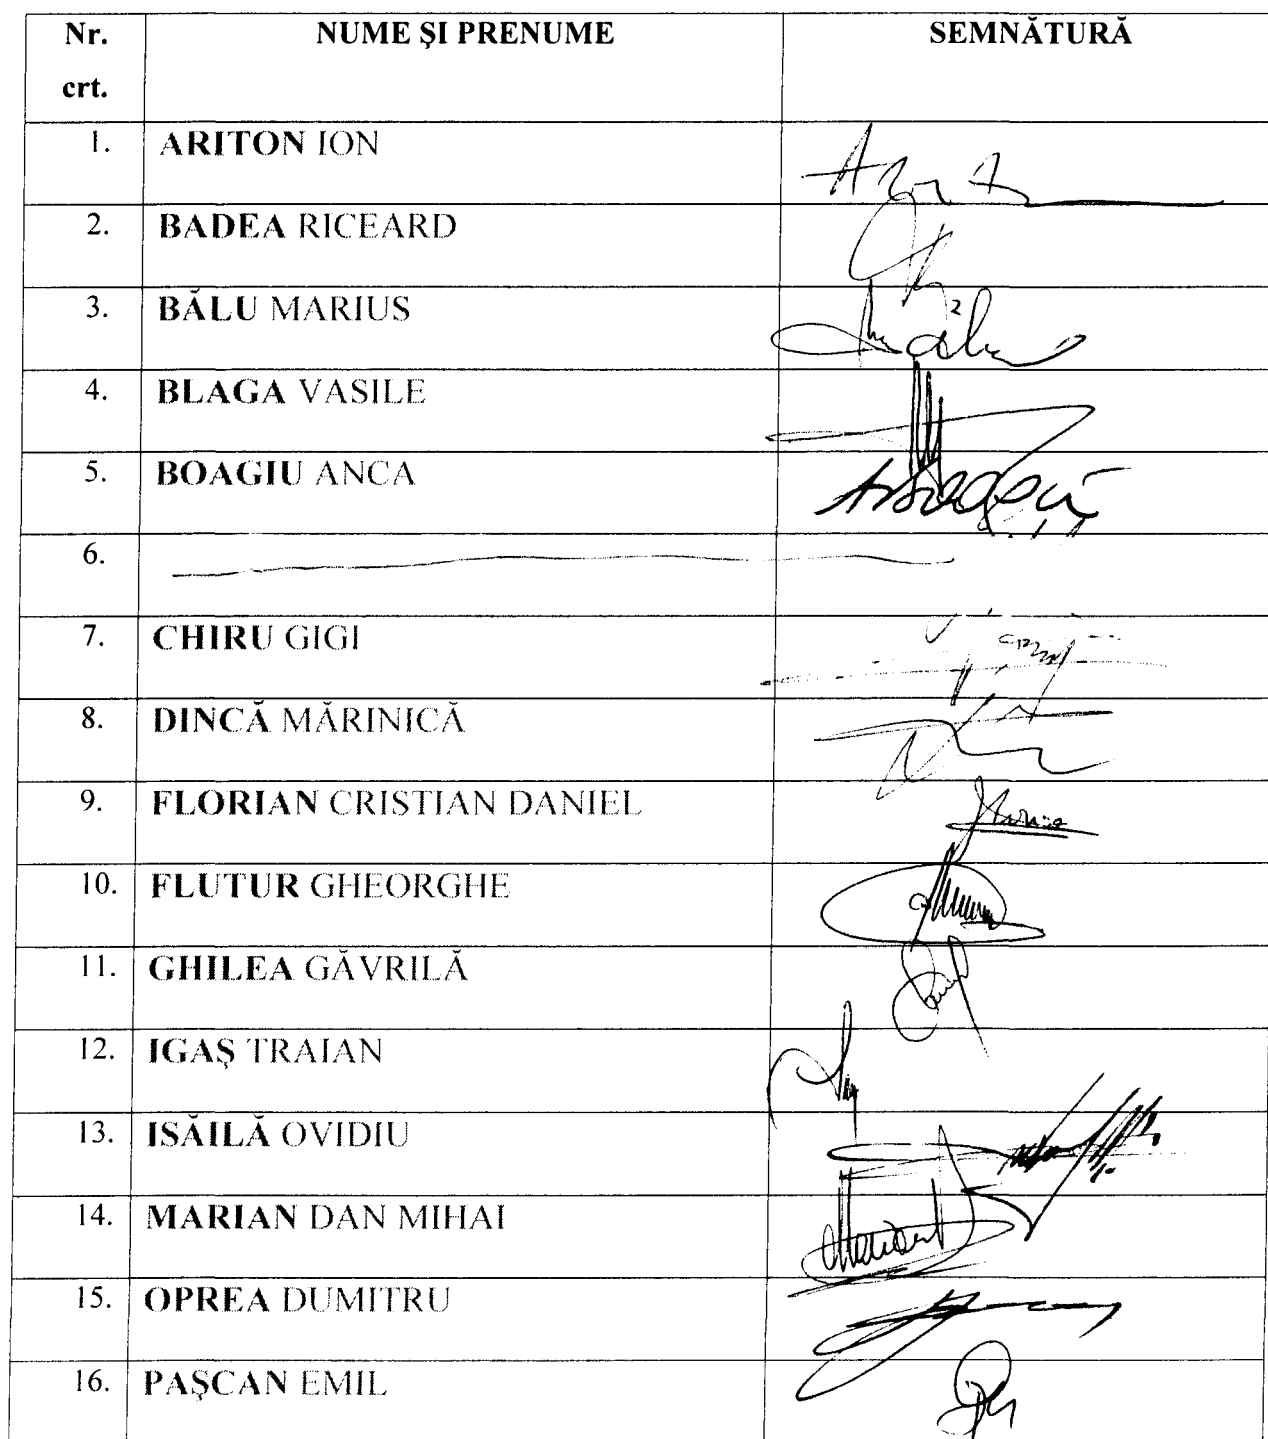 Nr. crt. NUME ŞI PRENUME SEMNĂTURĂ
1. ARITON ION
2. BADEA RICEARD
3. BĂLU MARIUS
4. BLAGA VASILE
5. BOAGIU ANCA
6.
7. CHIRU GIGI
8. DINCĂ MĂRINICĂ
9. FLORIAN CRISTIAN DANIEL
10. FLUTUR GHEORGHE
11. GHILEA GĂVRILĂ
12. IGAŞ TRAIAN
13. ISĂILĂ OVIDIU
14. MARIAN DAN MIHAI
15. OPREA DUMITRU
16. PAŞCAN EMIL